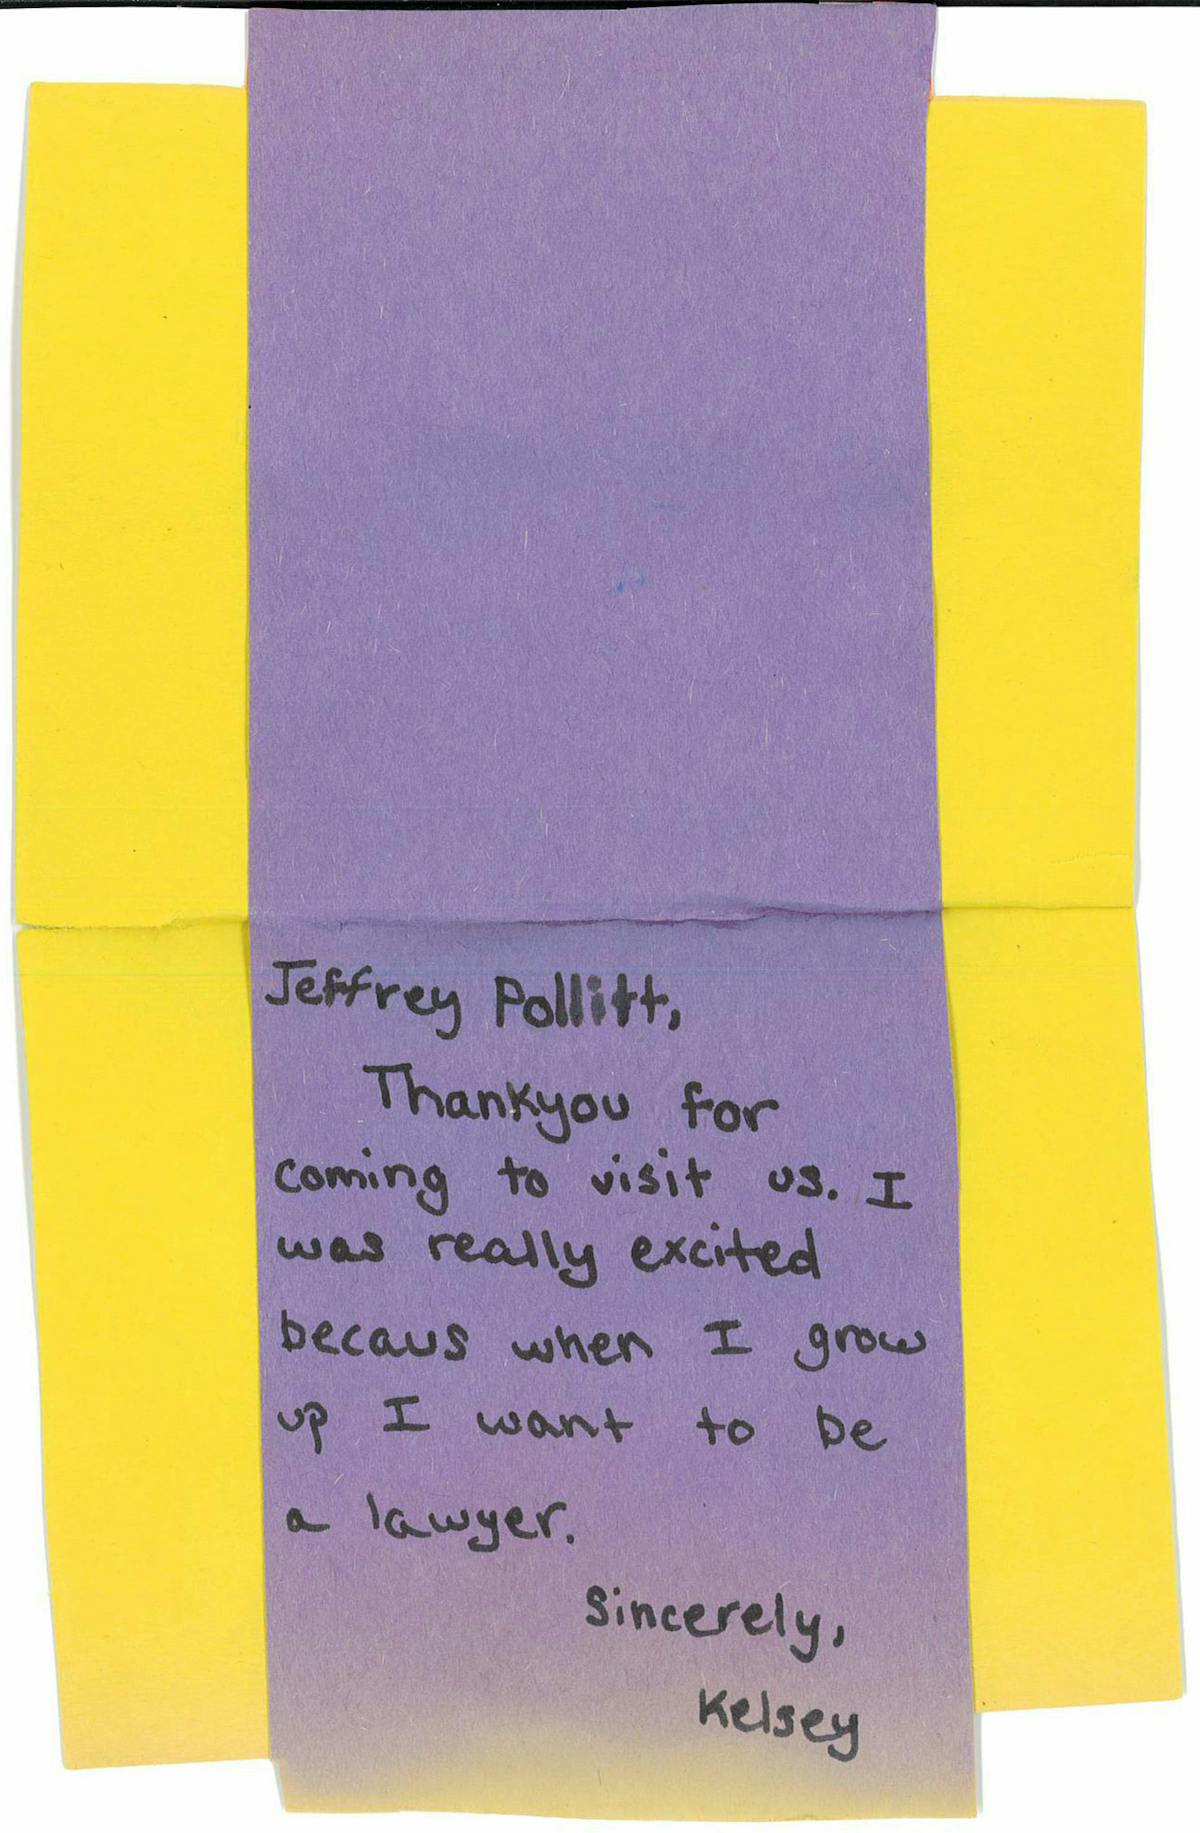 Jeffrey Pollitt,
Thankyou for
coming to visit us. I
was really excited
becaus when I grow
up I want to be
a lawyer.
Sincerely,
Kelsey